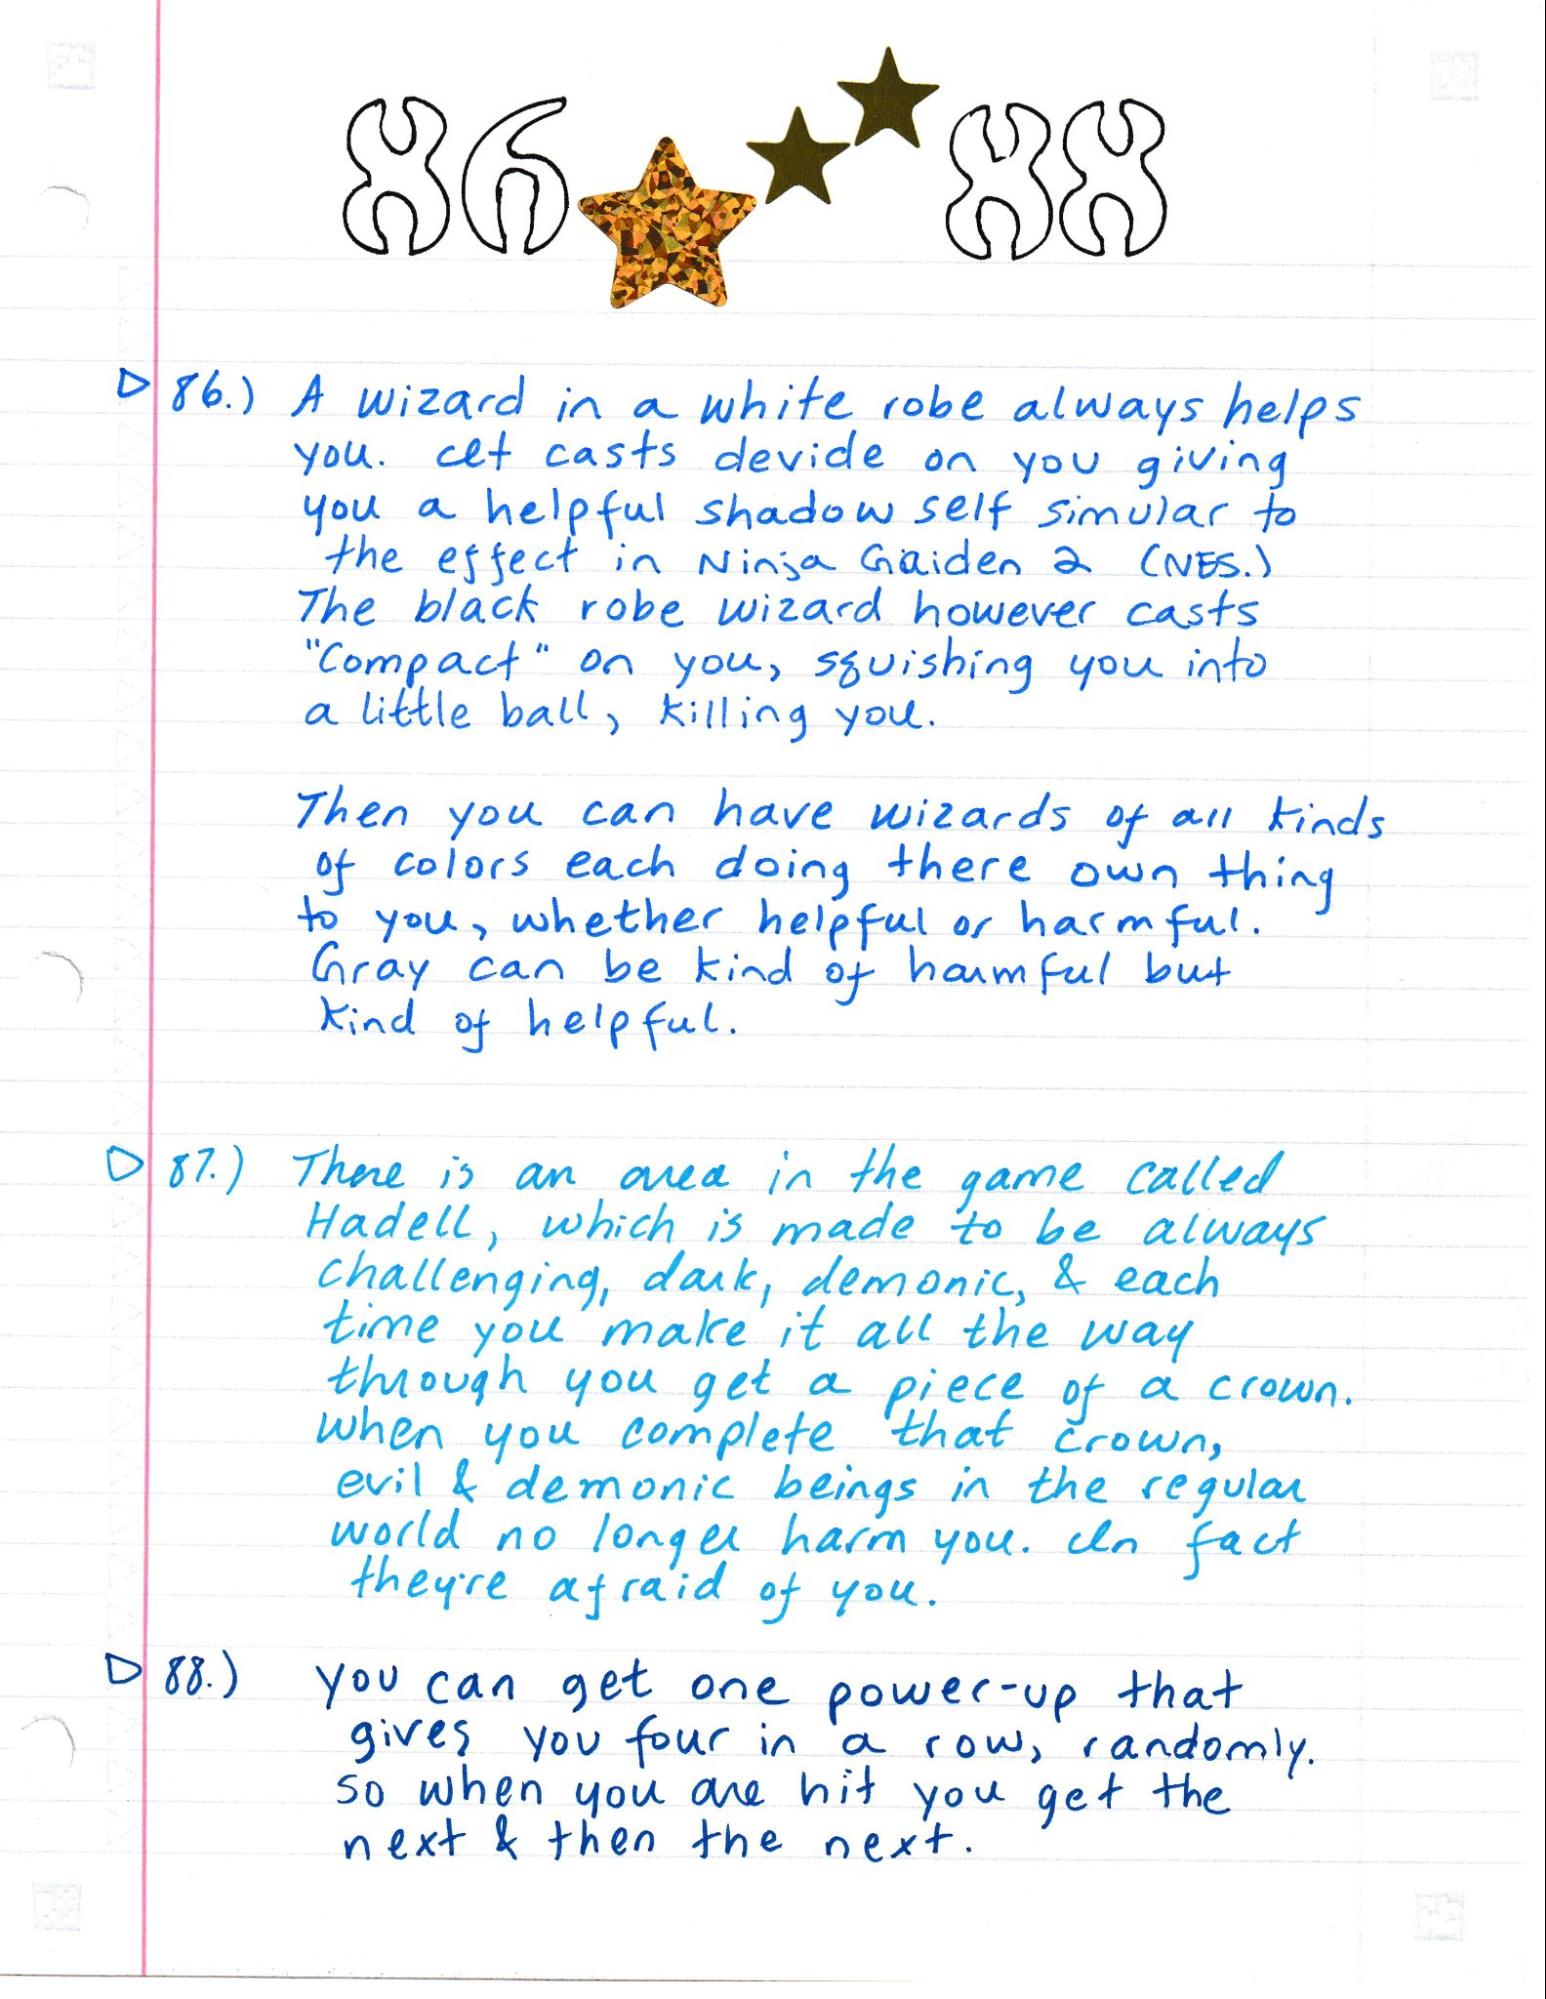 86 88
86.) A wizard in a white robe always helps
you. cet casts devide on you giving
you a helpful shadow self simular to
the effect in Ninja Gaiden 2 (NES.)
The black robe wizard however casts
"Compact" on you, squishing you into
a little ball, killing you.
Then you can have wizards of all kinds
of colors each doing there own thing
to you, whether helpful or harmful.
Gray can be kind of harmful but
kind of helpful.
87.) There is an area in the game called
Hadell, which is made to be always
challenging, dark, demonic, & each
time you make it all the way
through you get a piece of a crown.
when you complete that crown,
evil & demonic beings in the regular
world no longer harm you. In fact
they're afraid of you.
88.) you can get one power-up that
gives you four in a row, randomly.
so when you are hit you get the
next & then the next.